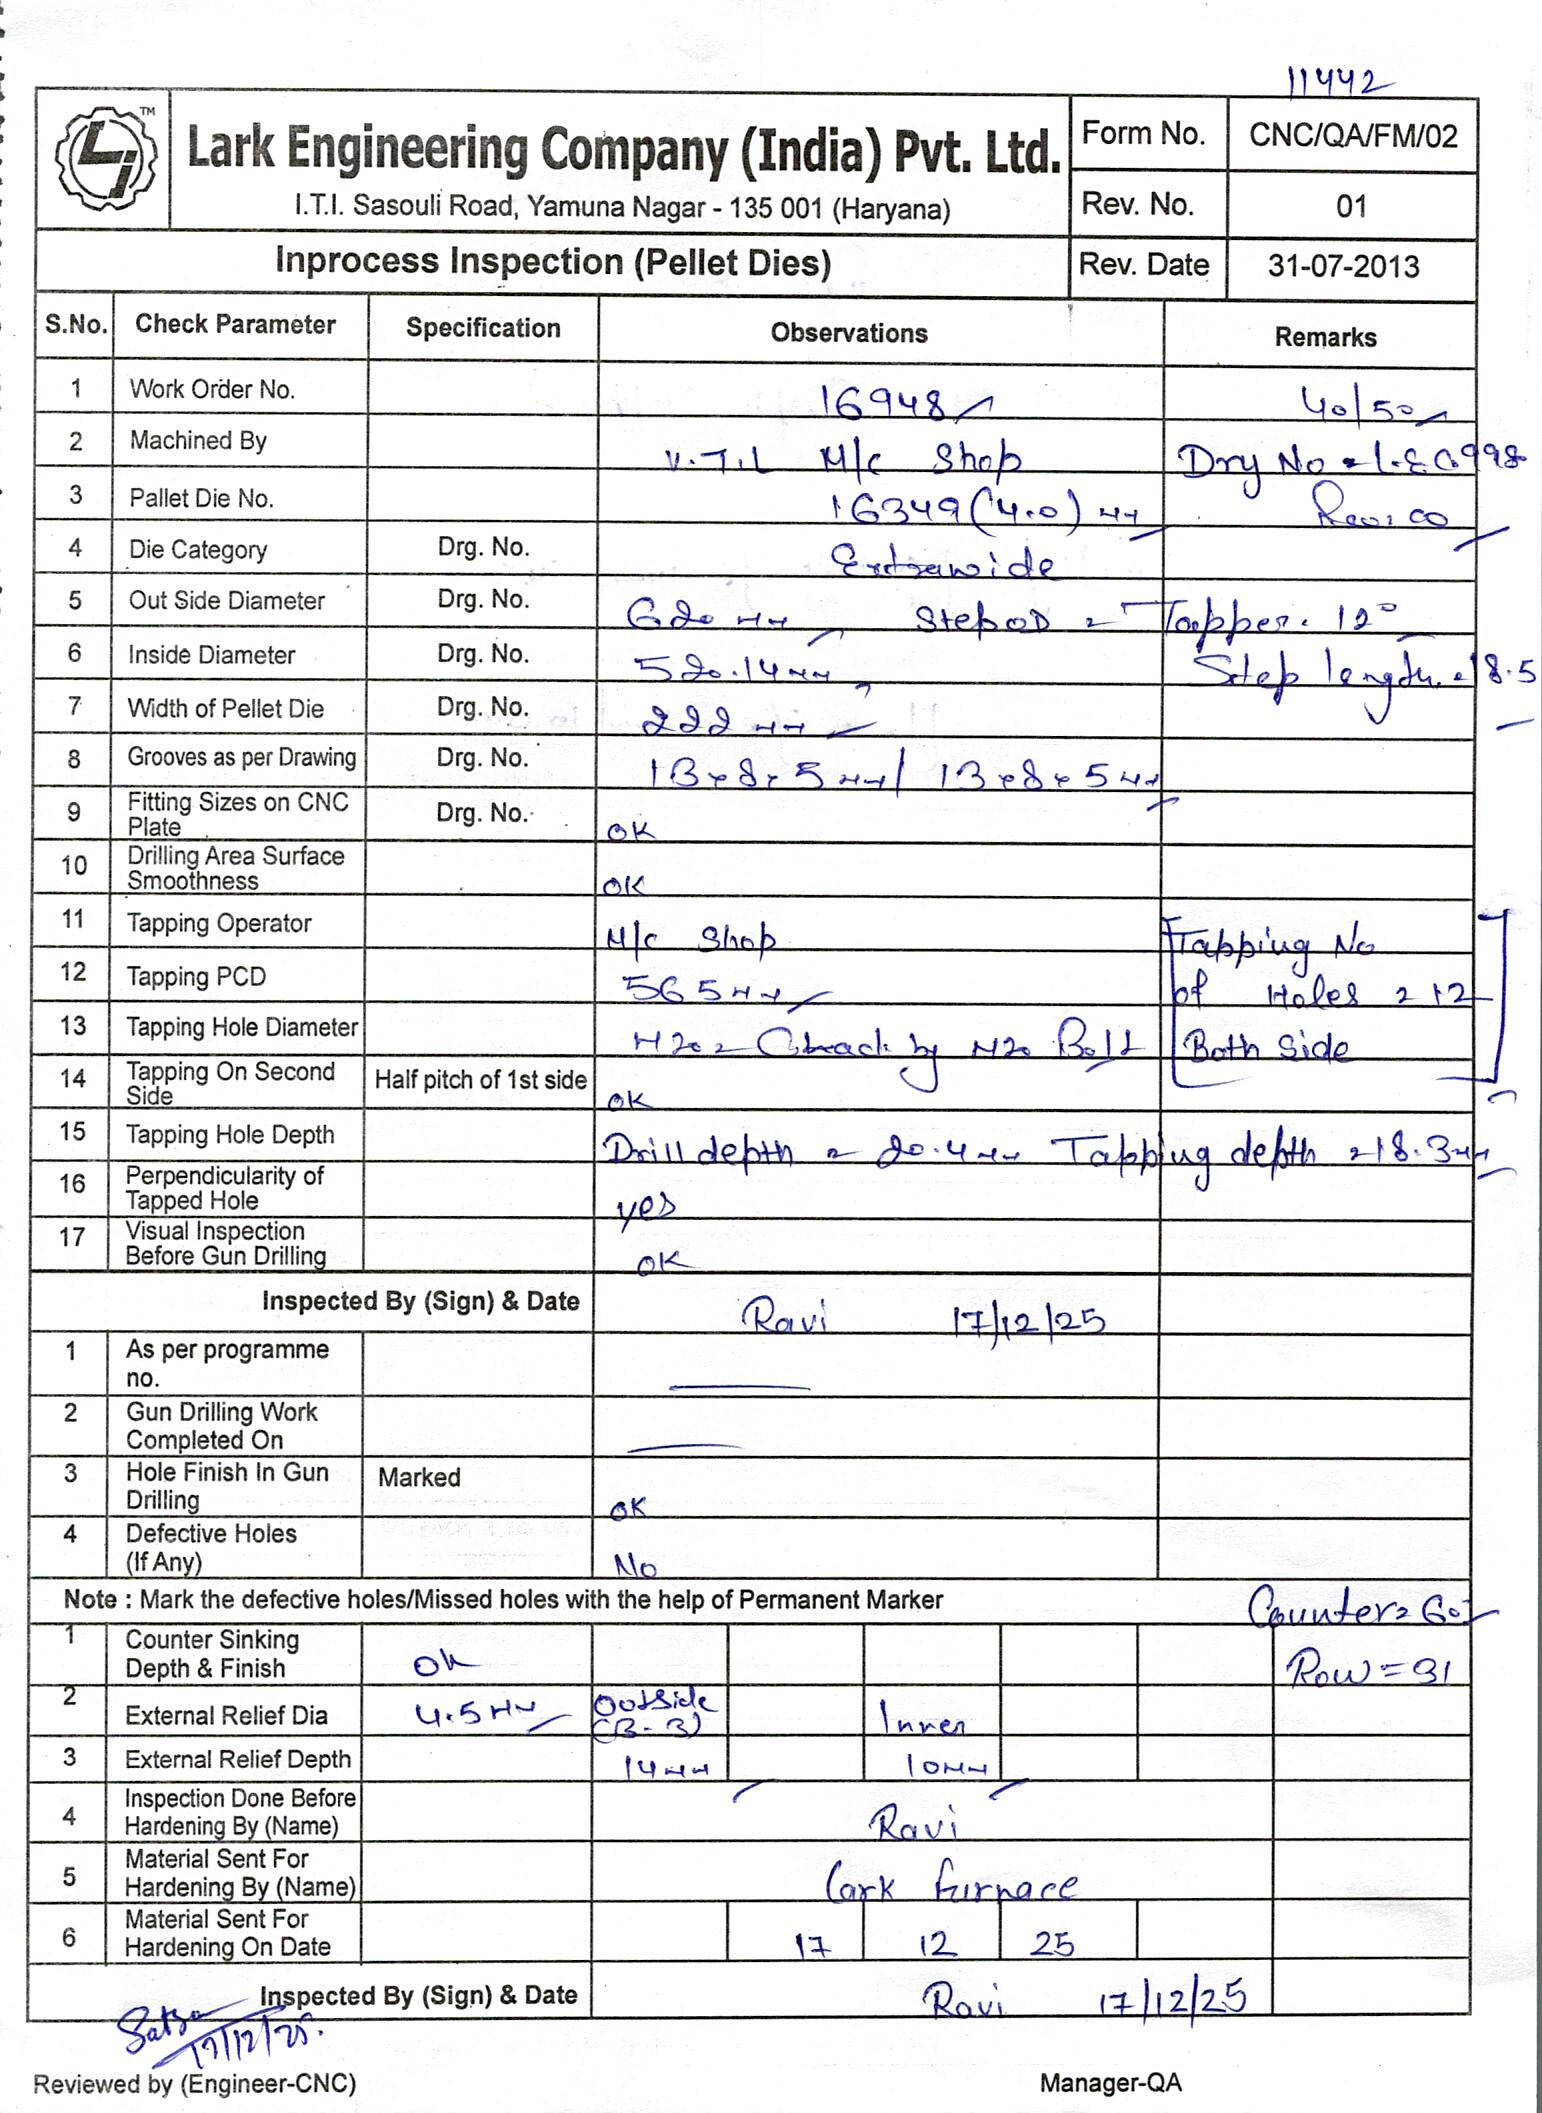 11442
TM
Lark Engineering Company (India) Pvt. Ltd.
I.T.I. Sasouli Road, Yamuna Nagar - 135 001 (Haryana)
Form No. CNC/QA/FM/02
Rev. No. 01
Inprocess Inspection (Pellet Dies) Rev. Date 31-07-2013
S.No. Check Parameter Specification Observations Remarks
1 Work Order No. 16948 40/50
2 Machined By V.T.L M/c Shop Drg No = L.E.C.998
3 Pallet Die No. 16349 (4.0) mm Rev: 00
4 Die Category Drg. No. Extrawide
5 Out Side Diameter Drg. No. 620 mm Step OD = Tapper. 12°
6 Inside Diameter Drg. No. 520.14 mm Step length = 18.5
7 Width of Pellet Die Drg. No. 222 mm
8 Grooves as per Drawing Drg. No. 13x8x5 mm/ 13x8x5 mm
9 Fitting Sizes on CNC Plate Drg. No. OK
10 Drilling Area Surface Smoothness OK
11 Tapping Operator M/c Shop Tapping No
12 Tapping PCD 565 mm of Holes = 12
13 Tapping Hole Diameter M20 = by M20 Bolt Both Side
14 Tapping On Second Side Half pitch of 1st side OK
15 Tapping Hole Depth Drill depth = 20.4 mm Tapping depth = 18.3 mm
16 Perpendicularity of Tapped Hole yes
17 Visual Inspection Before Gun Drilling OK
Inspected By (Sign) & Date Ravi 17/12/25
1 As per programme no.
2 Gun Drilling Work Completed On
3 Hole Finish In Gun Drilling Marked OK
4 Defective Holes (If Any) No
Note : Mark the defective holes/Missed holes with the help of Permanent Marker Counter = 60°
1 Counter Sinking Depth & Finish OK Row = 31
2 External Relief Dia 4.5 mm Outside (3-3) Inner
3 External Relief Depth 14 mm 10 mm
4 Inspection Done Before Hardening By (Name) Ravi
5 Material Sent For Hardening By (Name) Lark furnace
6 Material Sent For Hardening On Date 17 12 25
Inspected By (Sign) & Date Ravi 17/12/25
17/12/25.
Reviewed by (Engineer-CNC) Manager-QA